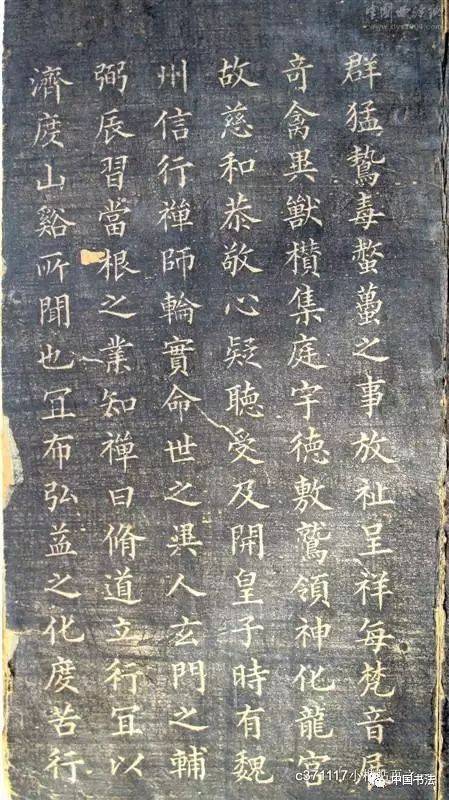 群猛鷙毒螫蠆之事放祉呈祥每梵音展
竒禽異獸欑集庭宇徳敷鷲領神化龍宮
故慈和恭敬心疑聽受及開皇子時有魏
州信行禪師輪實命世之異人玄門之輔
弼辰習當根之業知禪曰脩道立行冝以
濟度山谿所聞也冝布弘益之化度苦行
中国书法